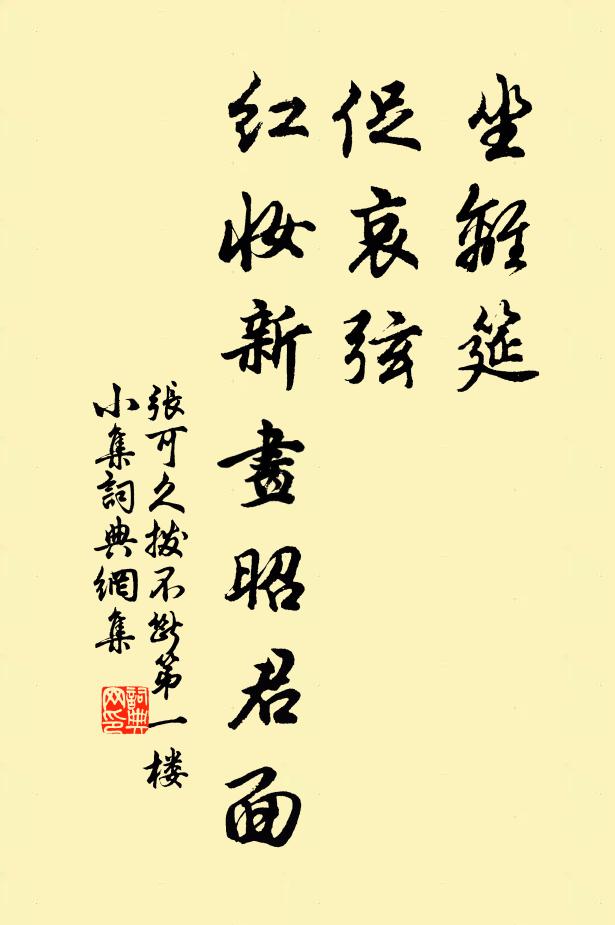 坐離筵
促哀弦
红妝新畫昭君面
張可久撥不斷第一楼
小集詞典網集
詞典网印